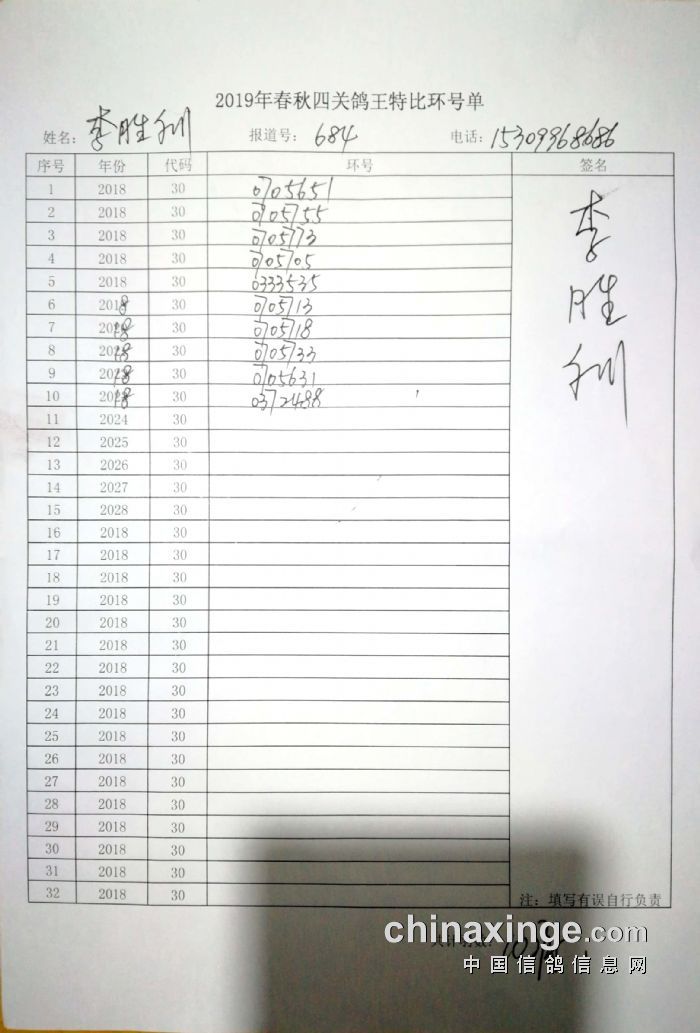 2019年春秋四关鸽王特比环号单
姓名: 李胜利 报道号: 684 电话: 15309968686
序号 年份 代码 环号 签名
1 2018 30 0705651
2 2018 30 0705755
3 2018 30 0705773
4 2018 30 0705705
5 2018 30 0333535
6 2018 30 0705713
7 2018 30 0705718
8 2018 30 0705733
9 2018 30 0705631
10 2018 30 0372488
11 2024 30
12 2025 30
13 2026 30
14 2027 30
15 2028 30
16 2018 30
17 2018 30
18 2018 30
19 2018 30
20 2018 30
21 2018 30
22 2018 30
23 2018 30
24 2018 30
25 2018 30
26 2018 30
27 2018 30
28 2018 30
29 2018 30
30 2018 30
31 2018 30
32 2018 30
李
胜
利
注: 填写有误自行负责
chinaxinge.com
中国信鸽信息网